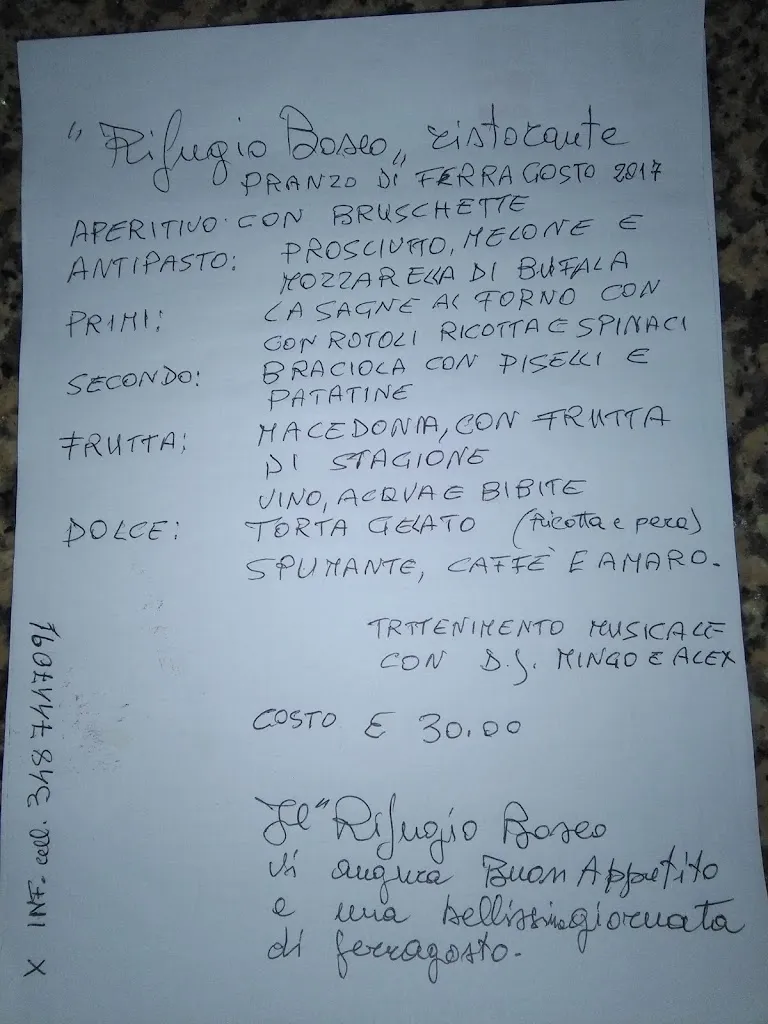 "Rifugio Bosco" ristorante
PRANZO DI FERRAGOSTO 2017
APERITIVO CON BRUSCHETTE
ANTIPASTO: PROSCIUTTO, MELONE E
MOZZARELLA DI BUFALA
PRIMI: LASAGNE AL FORNO CON
CON ROTOLI RICOTTA E SPINACI
SECONDO: BRACIOLA CON PISELLI E
PATATINE
FRUTTA: MACEDONIA, CON FRUTTA
DI STAGIONE
VINO, ACQUA E BIBITE
DOLCE: TORTA GELATO (ricotta e pera)
SPUMANTE, CAFFÈ E AMARO.
TRTTENIMENTO MUSICALE
CON D.J. MINGO E ALEX
COSTO € 30.00
Il "Rifugio Bosco
vi augura Buon Appetito
e una bellissima giornata
di ferragosto.
X INF. cell. 3487447091